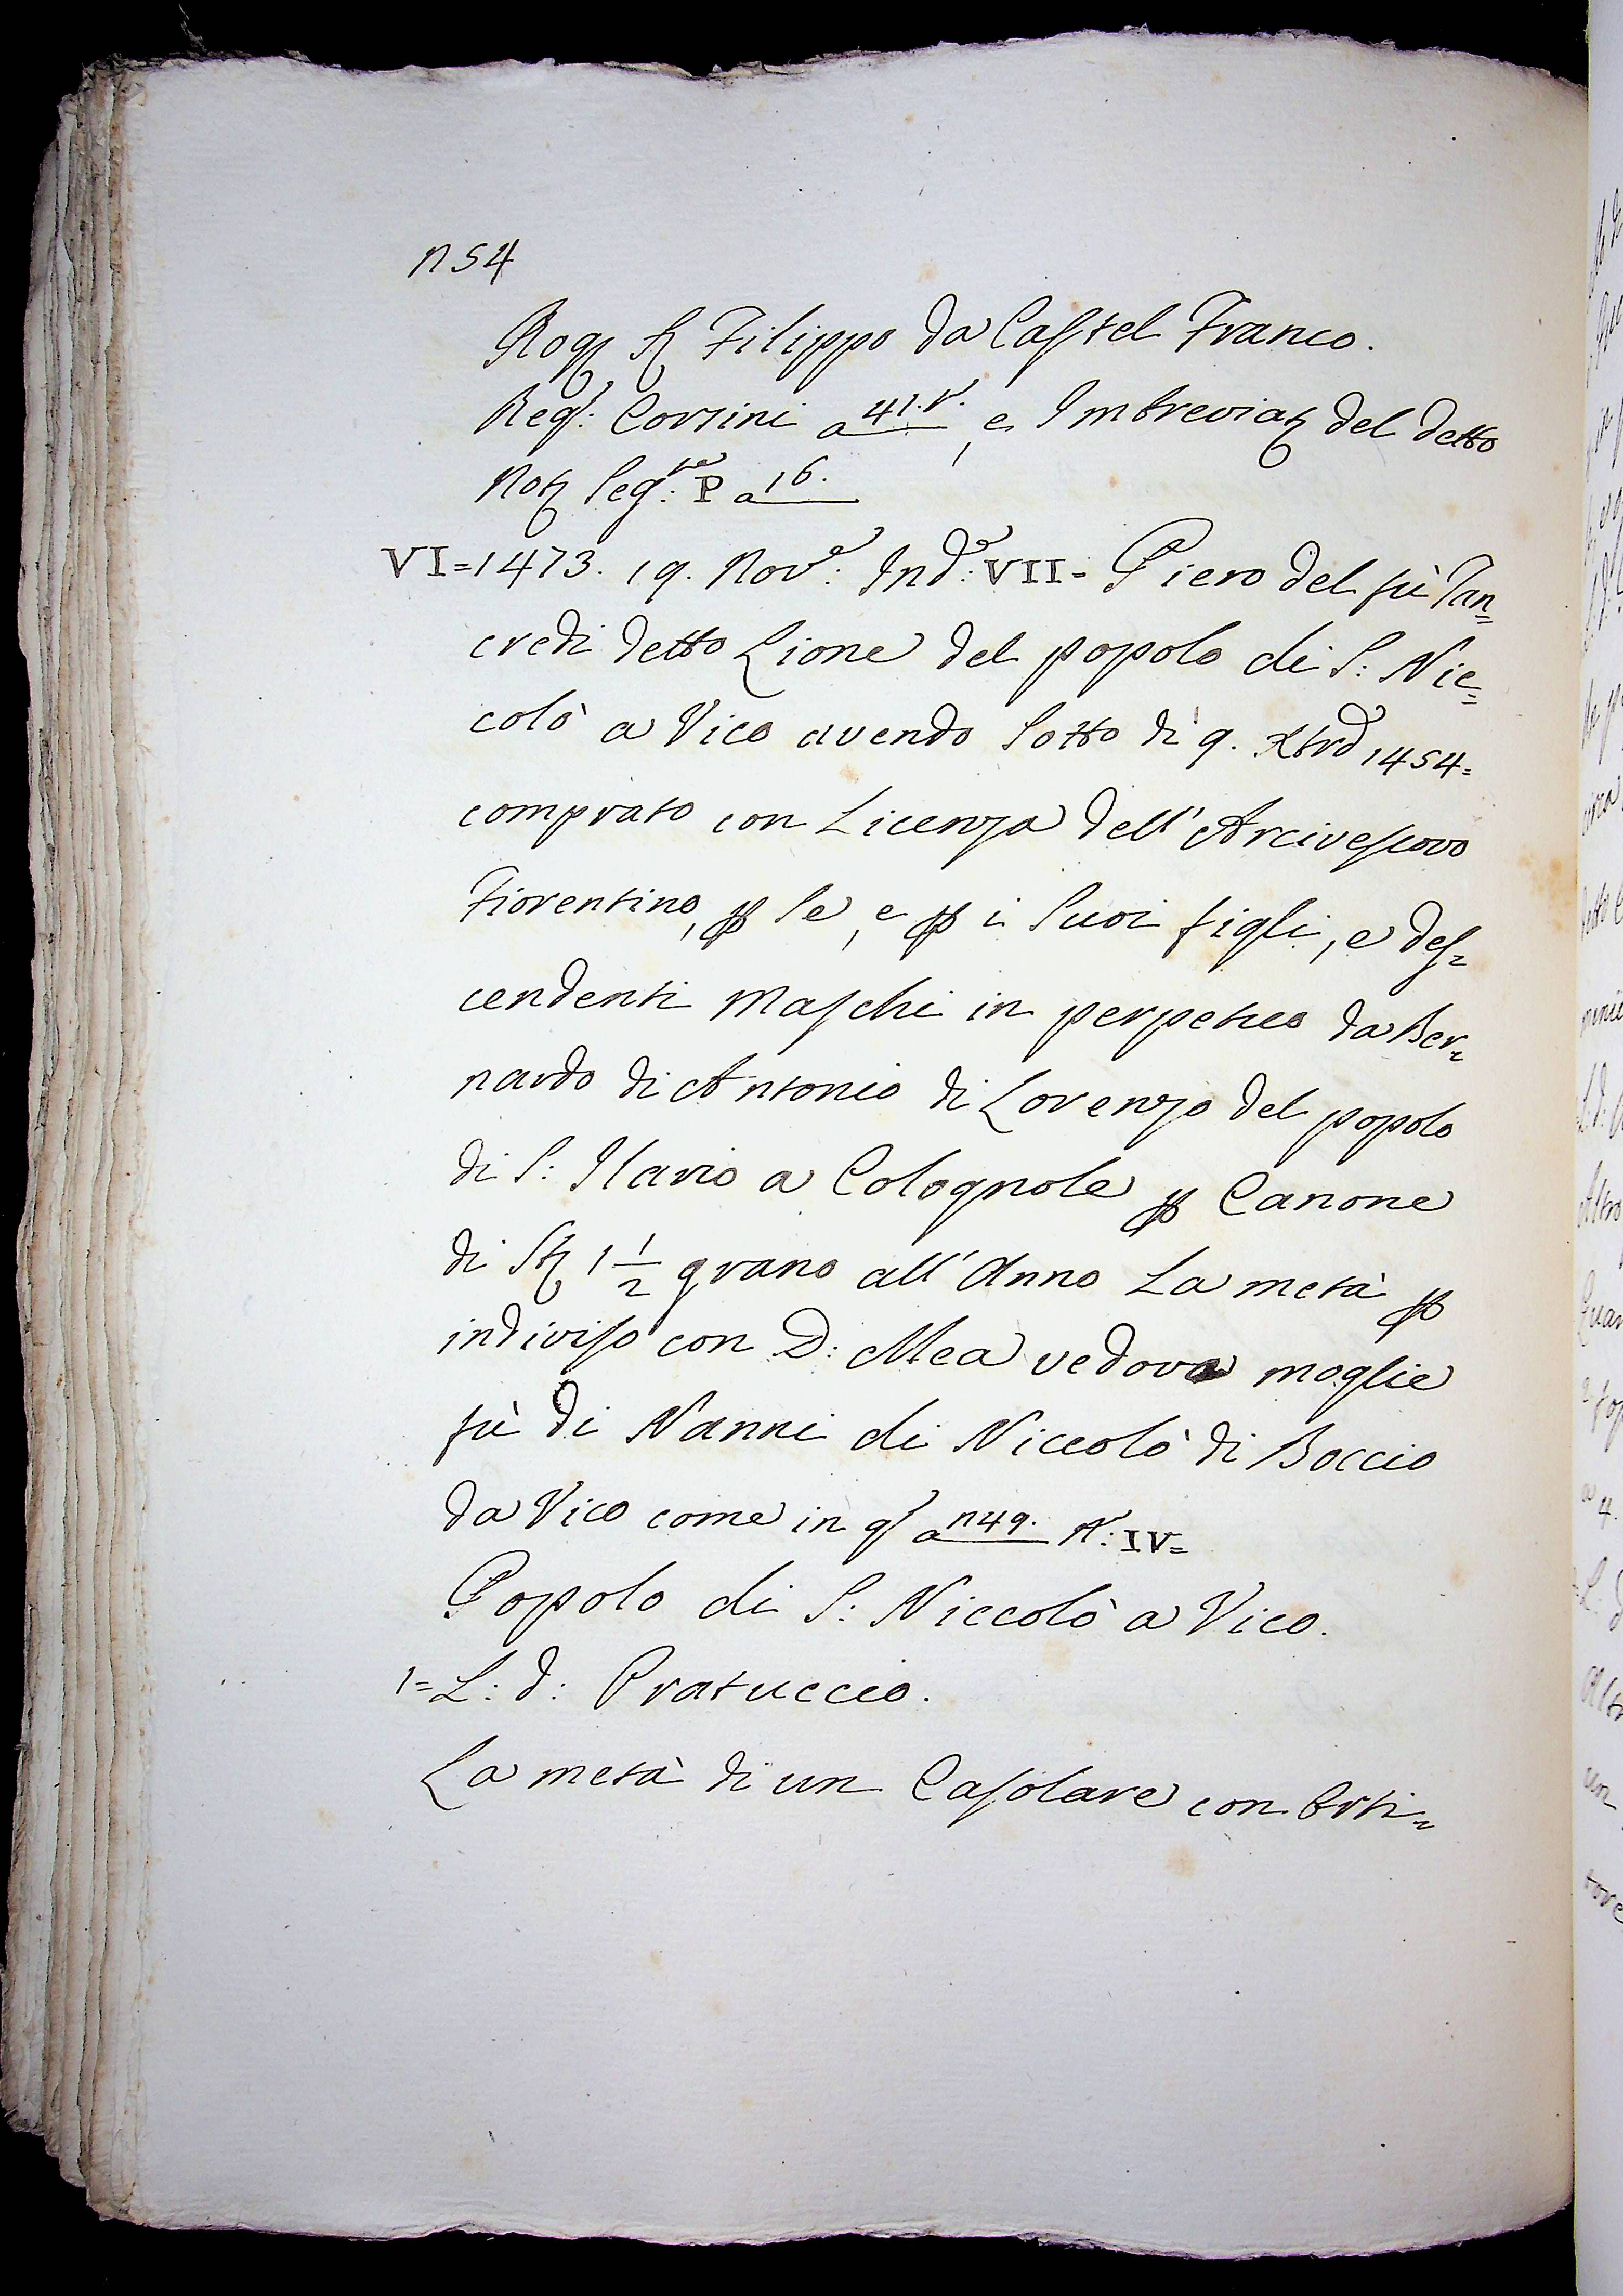 n54
Rog. S. Filippo da Castel Franco.
Reg.: Corsini a 41.v. e Imbreviaz del detto
Not Seg.re: P a 16.
VI=1473. 19. Nov.e: Ind.e: VII= Piero del fù Tan=
credi detto Lione del popolo di S: Nic=
colò a Vico avendo sotto dì 9. Xbre 1454=
comprato con Licenza dell'Arcivescovo
Fiorentino, p se, e p i suoi figli, e des=
cendenti maschi in perpetuo da Ber=
nardo di Antonio di Lorenzo del popolo
di S: Ilario a Colognole p Canone
di St 1 1/2 grano all'Anno La metà p
indiviso con D: Mea vedova moglie
fù di Nanni di Niccolò di Boccio
da Vico come in q a n49. N: IV=
Popolo di S: Niccolò a Vico.
1= L: d: Pratuccio.
La metà di un Casolare con Orti=